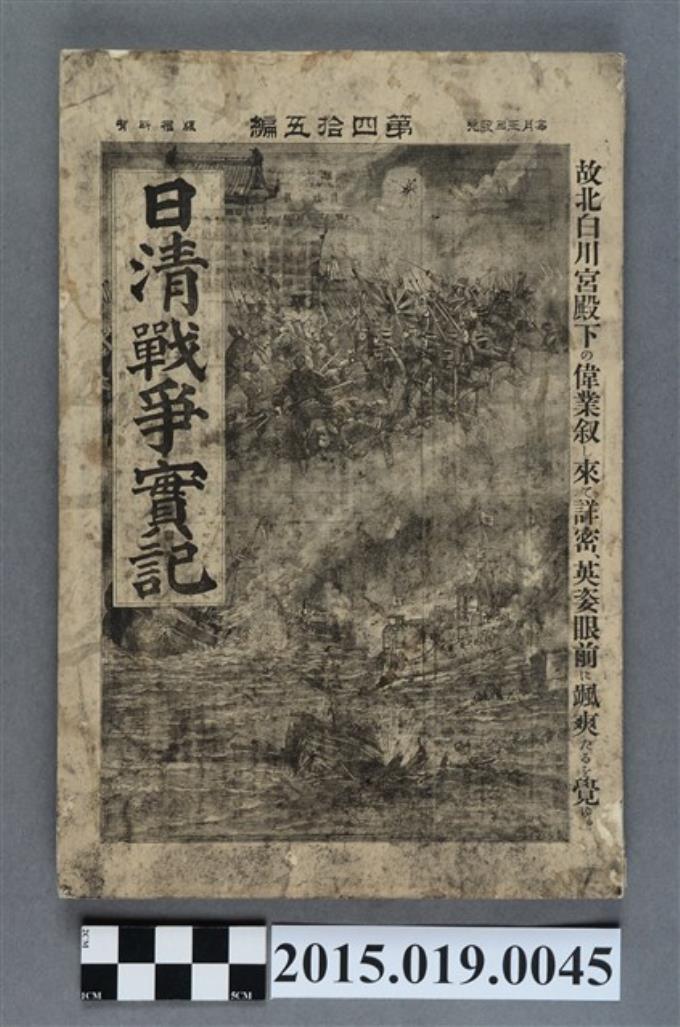 每月三回發兌
第四拾五編
版權所有
故北白川宮殿下の偉業叙し來て詳密、英姿眼前に颯爽たるを覺ゆ
日清戰爭實記
2CM
1CM
5CM
2015.019.0045